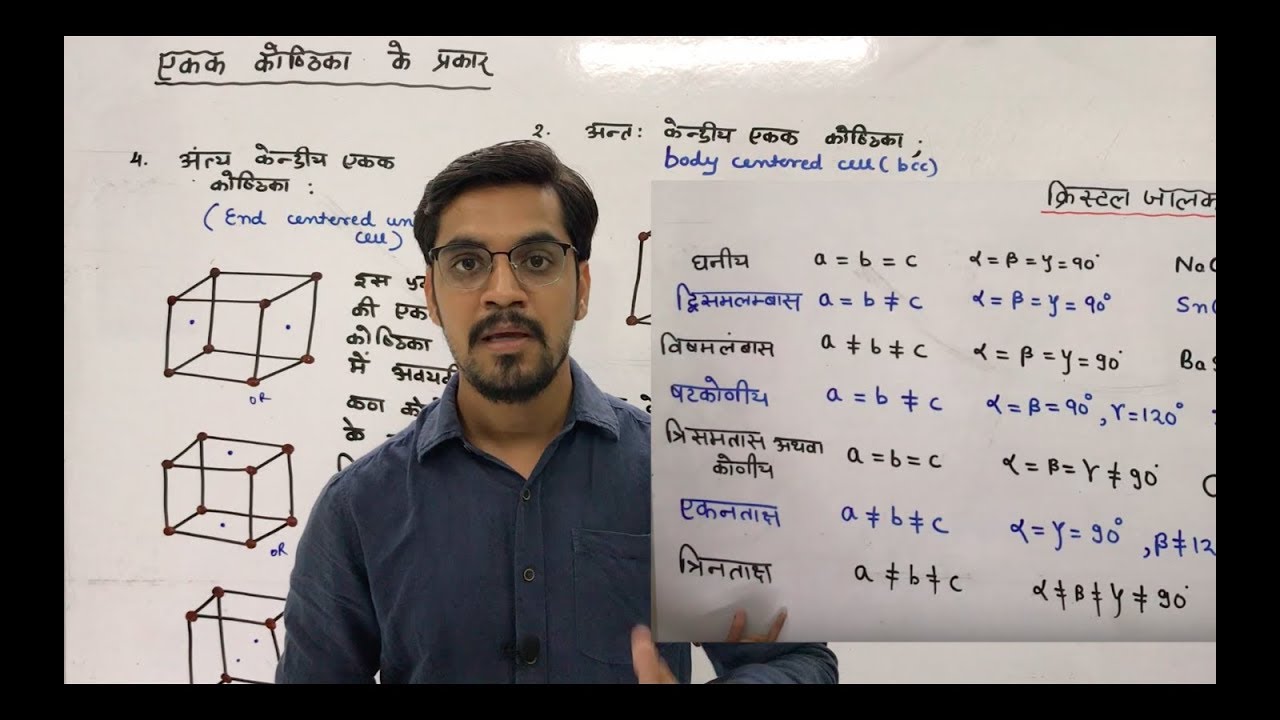 एकक कोष्ठिका के प्रकार
4. अंत्य केन्द्रीय एकक
कोष्ठिका :
(End centered un
cell)
इस
की एक
कोष्ठिका
में अवयवी
के
OR
OR
2. अन्तः केन्द्रीय एकक कोष्ठिका ;
body centered cell (bcc)
क्रिस्टल जालक
घनीय a = b = c α = β = γ = 90° NaC
द्विसमलम्बास a = b ≠ c α = β = γ = 90° SnO
विषमलंबास a ≠ b ≠ c α = β = γ = 90° BaS
षटकोणीय a = b ≠ c α = β = 90°, γ = 120°
त्रिसमतास अथवा
कोणीय a = b = c α = β = γ ≠ 90°
एकनताक्ष a ≠ b ≠ c α = γ = 90°, β ≠ 12
त्रिनताक्ष a ≠ b ≠ c α ≠ β ≠ γ ≠ 90°